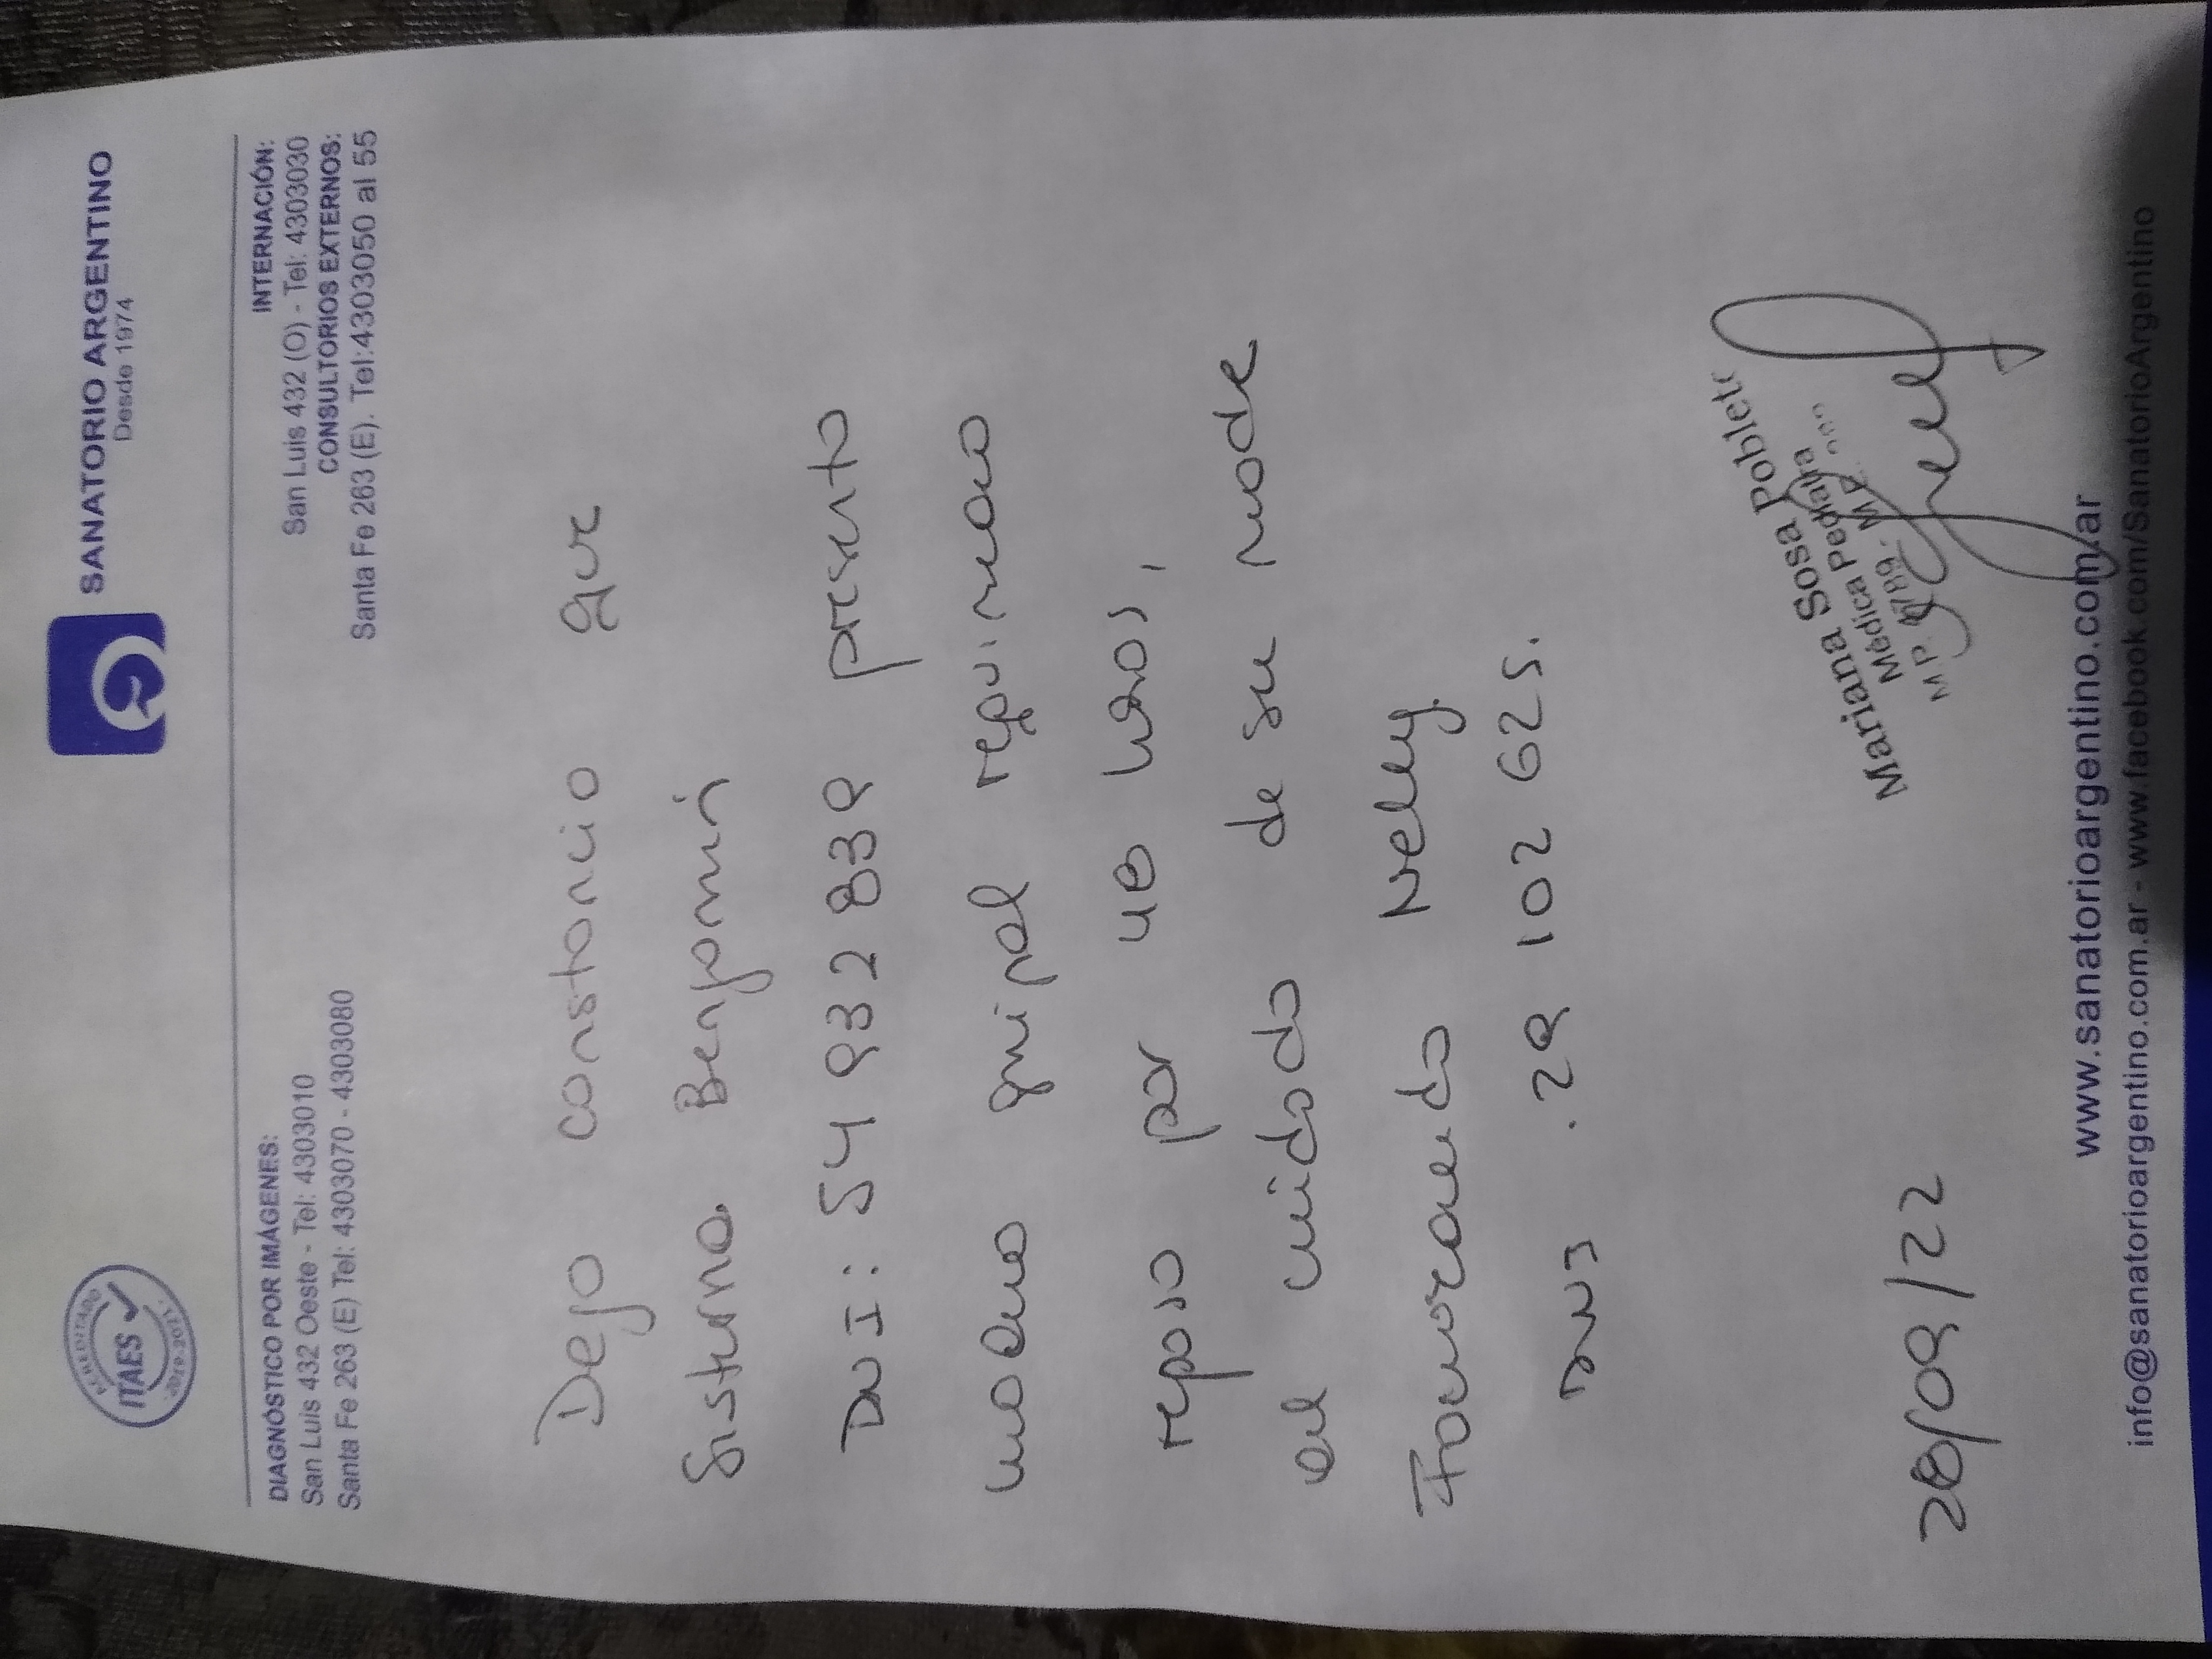 ACREDITADO
ITAES
SANATORIO ARGENTINO
Desde 1974
DIAGNÓSTICO POR IMÁGENES:
San Luis 432 Oeste - Tel: 4303010
Santa Fe 263 (E) Tel: 4303070 - 4303080
INTERNACIÓN:
San Luis 432 (O) - Tel: 4303030
CONSULTORIOS EXTERNOS:
Santa Fe 263 (E). Tel:4303050 al 55
Dejo constancia que
Sisterna Benjamin
DNI: 54 932 839 presento
gripal
reposo por 48 horas,
al cuidado de su madre
Nelly
DNI . 29 102 625.
Mariana Sosa Poblete
Médica Pediatra
M.P.
28/09/22
www.sanatorioargentino.com.ar
info@sanatorioargentino.com.ar - www.facebook.com/SanatorioArgentino